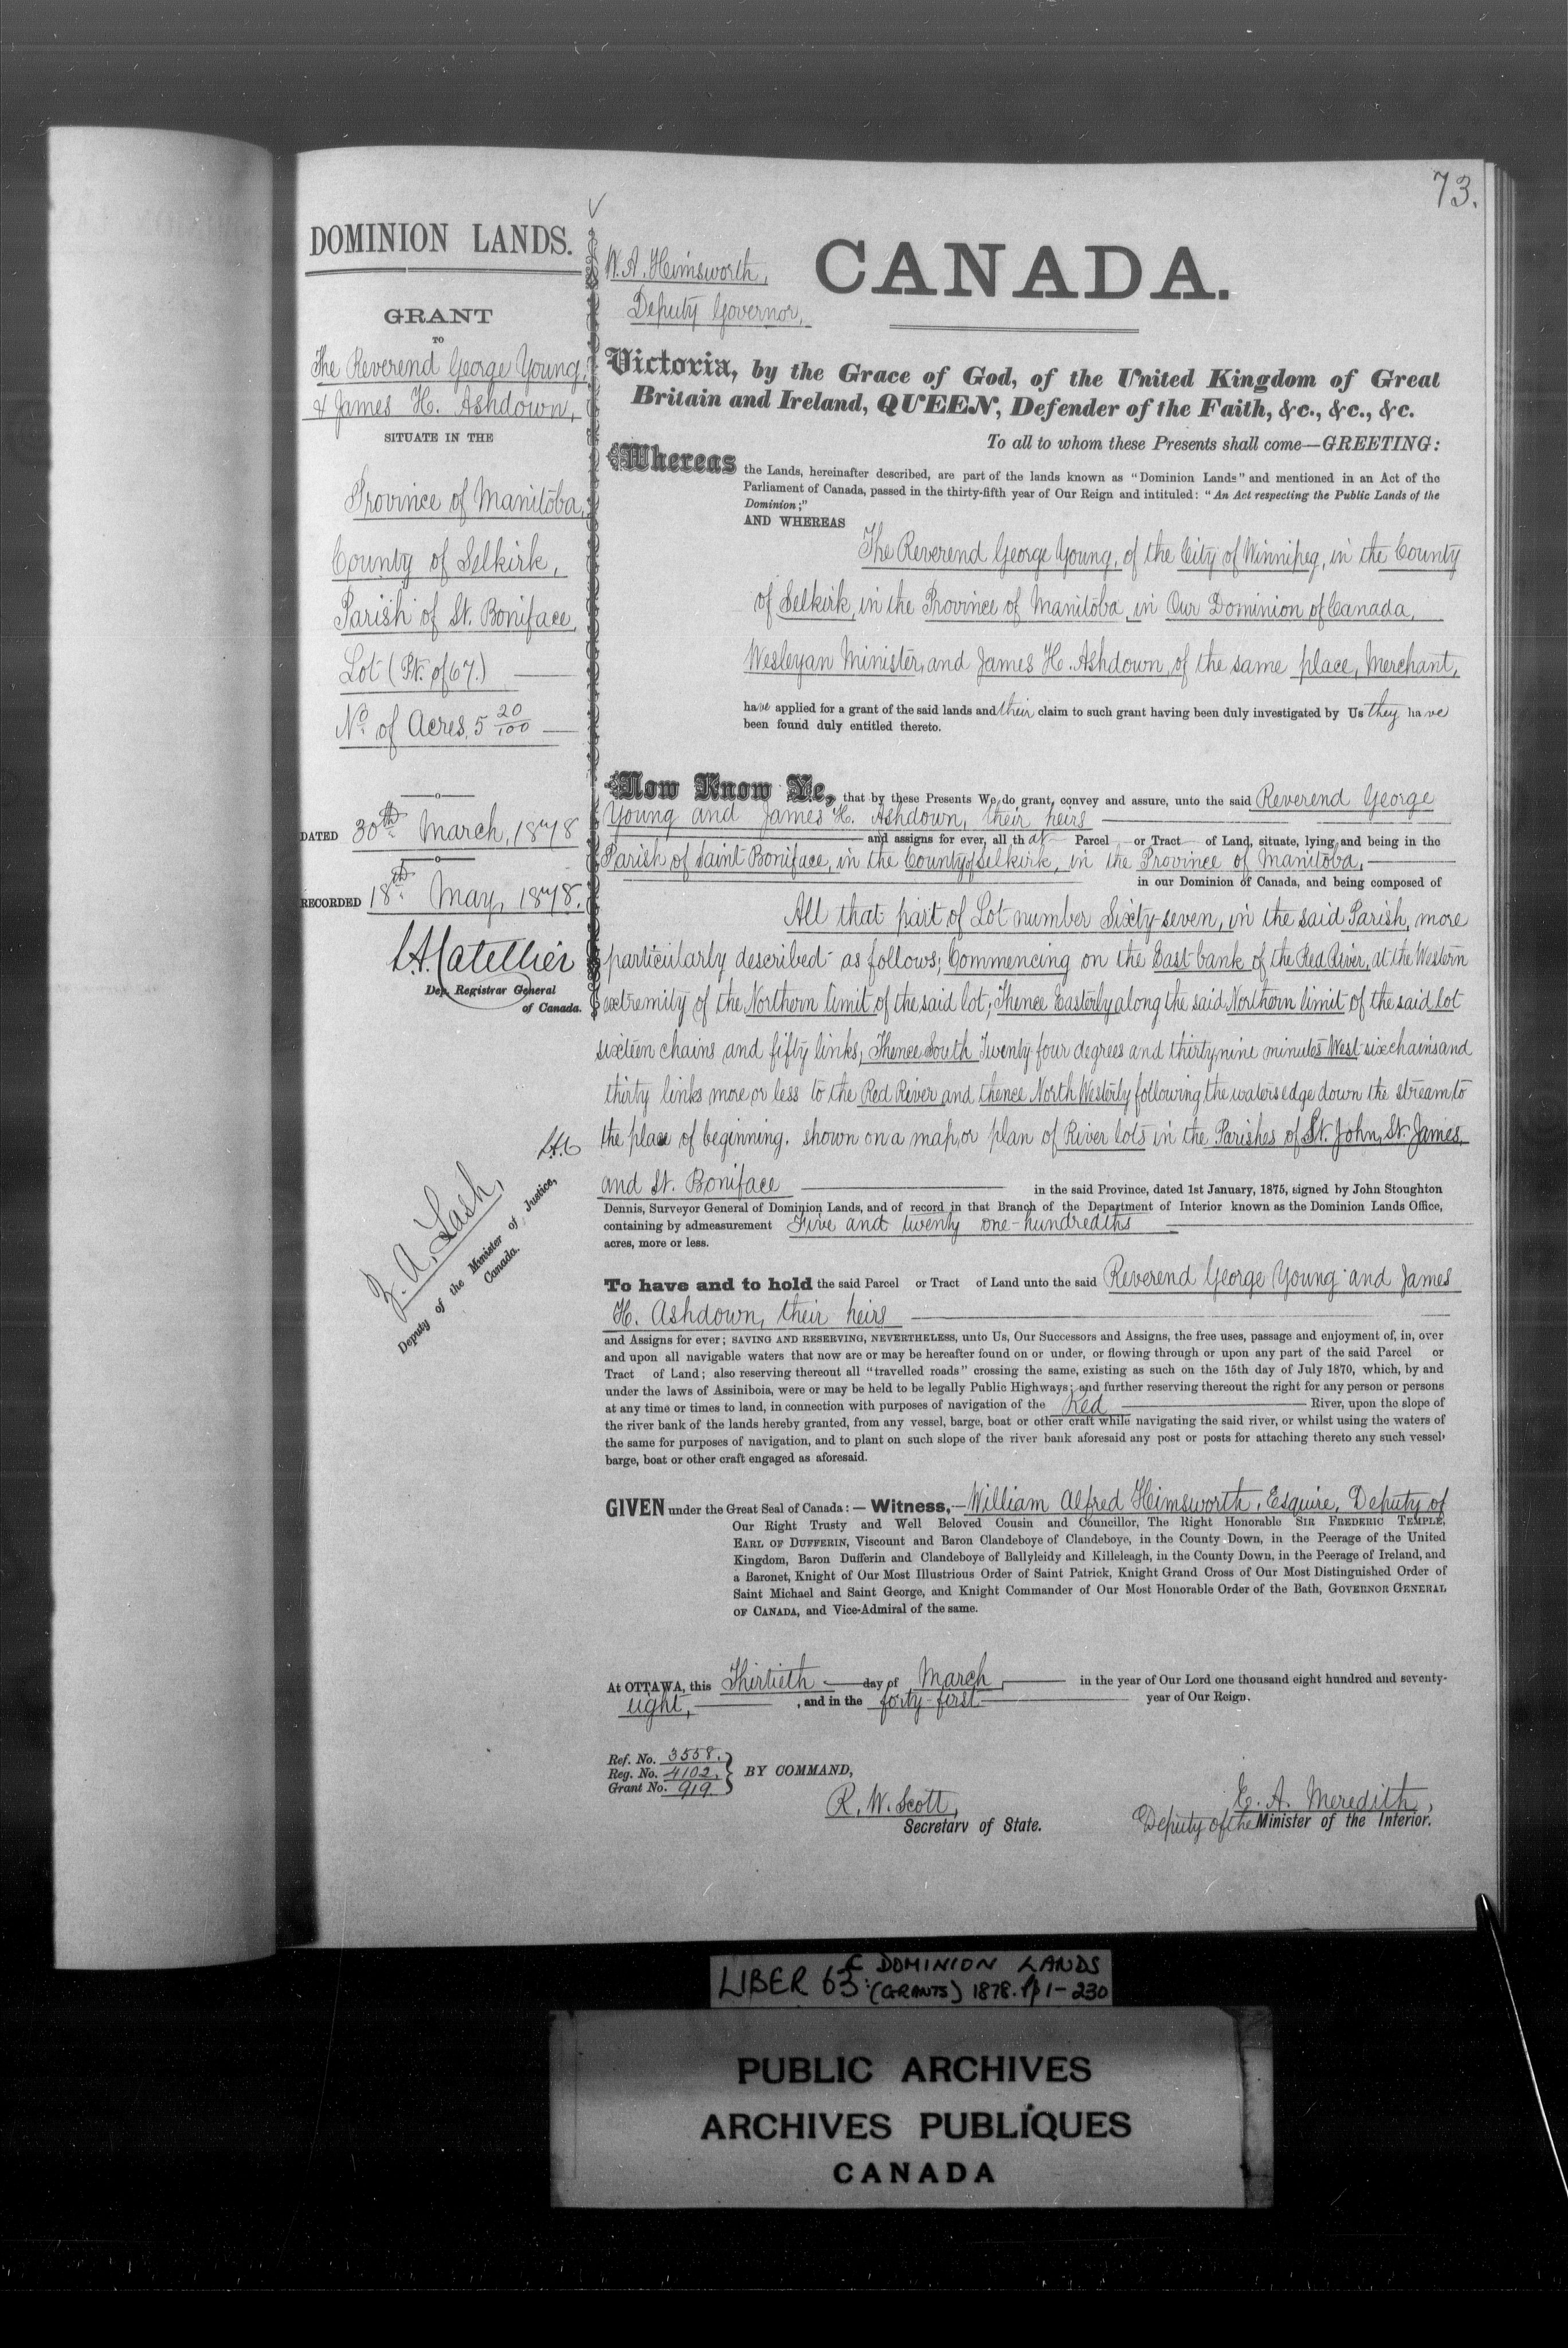 73.
DOMINION LANDS.
GRANT
TO
The Reverend George Young,
& James H. Ashdown,
SITUATE IN THE
Province of Manitoba,
County of Selkirk,
Parish of St. Boniface,
Lot (Pt. of 67.)
No. of Acres, 5 20/100
DATED 30th March, 1878
RECORDED 18th May, 1878.
L.A. Catellier
Dep. Registrar General
of Canada.
L.A.C
Z. A. Lash,
Deputy of the Minister of Justice,
Canada.
W. A. Himsworth,
Deputy Governor,
CANADA.
Victoria, by the Grace of God, of the United Kingdom of Great
Britain and Ireland, QUEEN, Defender of the Faith, &c., &c., &c.
To all to whom these Presents shall come—GREETING:
Whereas the Lands, hereinafter described, are part of the lands known as "Dominion Lands" and mentioned in an Act of the
Parliament of Canada, passed in the thirty-fifth year of Our Reign and intituled: "An Act respecting the Public Lands of the
Dominion;"
AND WHEREAS
The Reverend George Young, of the City of Winnipeg, in the County
of Selkirk, in the Province of Manitoba, in Our Dominion of Canada,
Wesleyan Minister, and James H. Ashdown, of the same place, Merchant,
have applied for a grant of the said lands and their claim to such grant having been duly investigated by Us they have
been found duly entitled thereto.
Now Know Ye, that by these Presents We do grant, convey and assure, unto the said Reverend George
Young and James H. Ashdown, their heirs
and assigns for ever, all that Parcel or Tract of Land, situate, lying and being in the
Parish of Saint Boniface, in the County of Selkirk, in the Province of Manitoba,
in our Dominion of Canada, and being composed of
All that part of Lot number Sixty-seven, in the said Parish, more
particularly described as follows; Commencing on the East bank of the Red River, at the Western
extremity of the Northern limit of the said lot; Thence Easterly along the said Northern limit of the said lot
sixteen chains and fifty links, Thence South Twenty four degrees and thirty nine minutes West six chains and
thirty links more or less to the Red River and thence North Westerly following the waters edge down the stream to
the place of beginning. shown on a map or plan of River lots in the Parishes of St. John, St. James,
and St. Boniface in the said Province, dated 1st January, 1875, signed by John Stoughton
Dennis, Surveyor General of Dominion Lands, and of record in that Branch of the Department of Interior known as the Dominion Lands Office,
containing by admeasurement Five and twenty one-hundredths
acres, more or less.
To have and to hold the said Parcel or Tract of Land unto the said Reverend George Young and James
H. Ashdown, their heirs
and Assigns for ever; SAVING AND RESERVING, NEVERTHELESS, unto Us, Our Successors and Assigns, the free uses, passage and enjoyment of, in, over
and upon all navigable waters that now are or may be hereafter found on or under, or flowing through or upon any part of the said Parcel or
Tract of Land; also reserving thereout all "travelled roads" crossing the same, existing as such on the 15th day of July 1870, which, by and
under the laws of Assiniboia, were or may be held to be legally Public Highways; and further reserving thereout the right for any person or persons
at any time or times to land, in connection with purposes of navigation of the Red River, upon the slope of
the river bank of the lands hereby granted, from any vessel, barge, boat or other craft while navigating the said river, or whilst using the waters of
the same for purposes of navigation, and to plant on such slope of the river bank aforesaid any post or posts for attaching thereto any such vessel,
barge, boat or other craft engaged as aforesaid.
GIVEN under the Great Seal of Canada:—Witness,—William Alfred Himsworth, Esquire, Deputy of
Our Right Trusty and Well Beloved Cousin and Councillor, The Right Honorable SIR FREDERIC TEMPLE,
EARL OF DUFFERIN, Viscount and Baron Clandeboye of Clandeboye, in the County Down, in the Peerage of the United
Kingdom, Baron Dufferin and Clandeboye of Ballyleidy and Killeleagh, in the County Down, in the Peerage of Ireland, and
a Baronet, Knight of Our Most Illustrious Order of Saint Patrick, Knight Grand Cross of Our Most Distinguished Order of
Saint Michael and Saint George, and Knight Commander of Our Most Honorable Order of the Bath, GOVERNOR GENERAL
OF CANADA, and Vice-Admiral of the same.
At OTTAWA, this Thirtieth day of March in the year of Our Lord one thousand eight hundred and seventy-
eight, , and in the forty-first year of Our Reign.
Ref. No. 3558.
Reg. No. 4102.
Grant No. 919.
BY COMMAND,
R. W. Scott,
Secretary of State.
E. A. Meredith,
Deputy of the Minister of the Interior.
LIBER 63: C DOMINION LANDS
(GRANTS) 1878. pp 1-230
PUBLIC ARCHIVES
ARCHIVES PUBLIQUES
CANADA